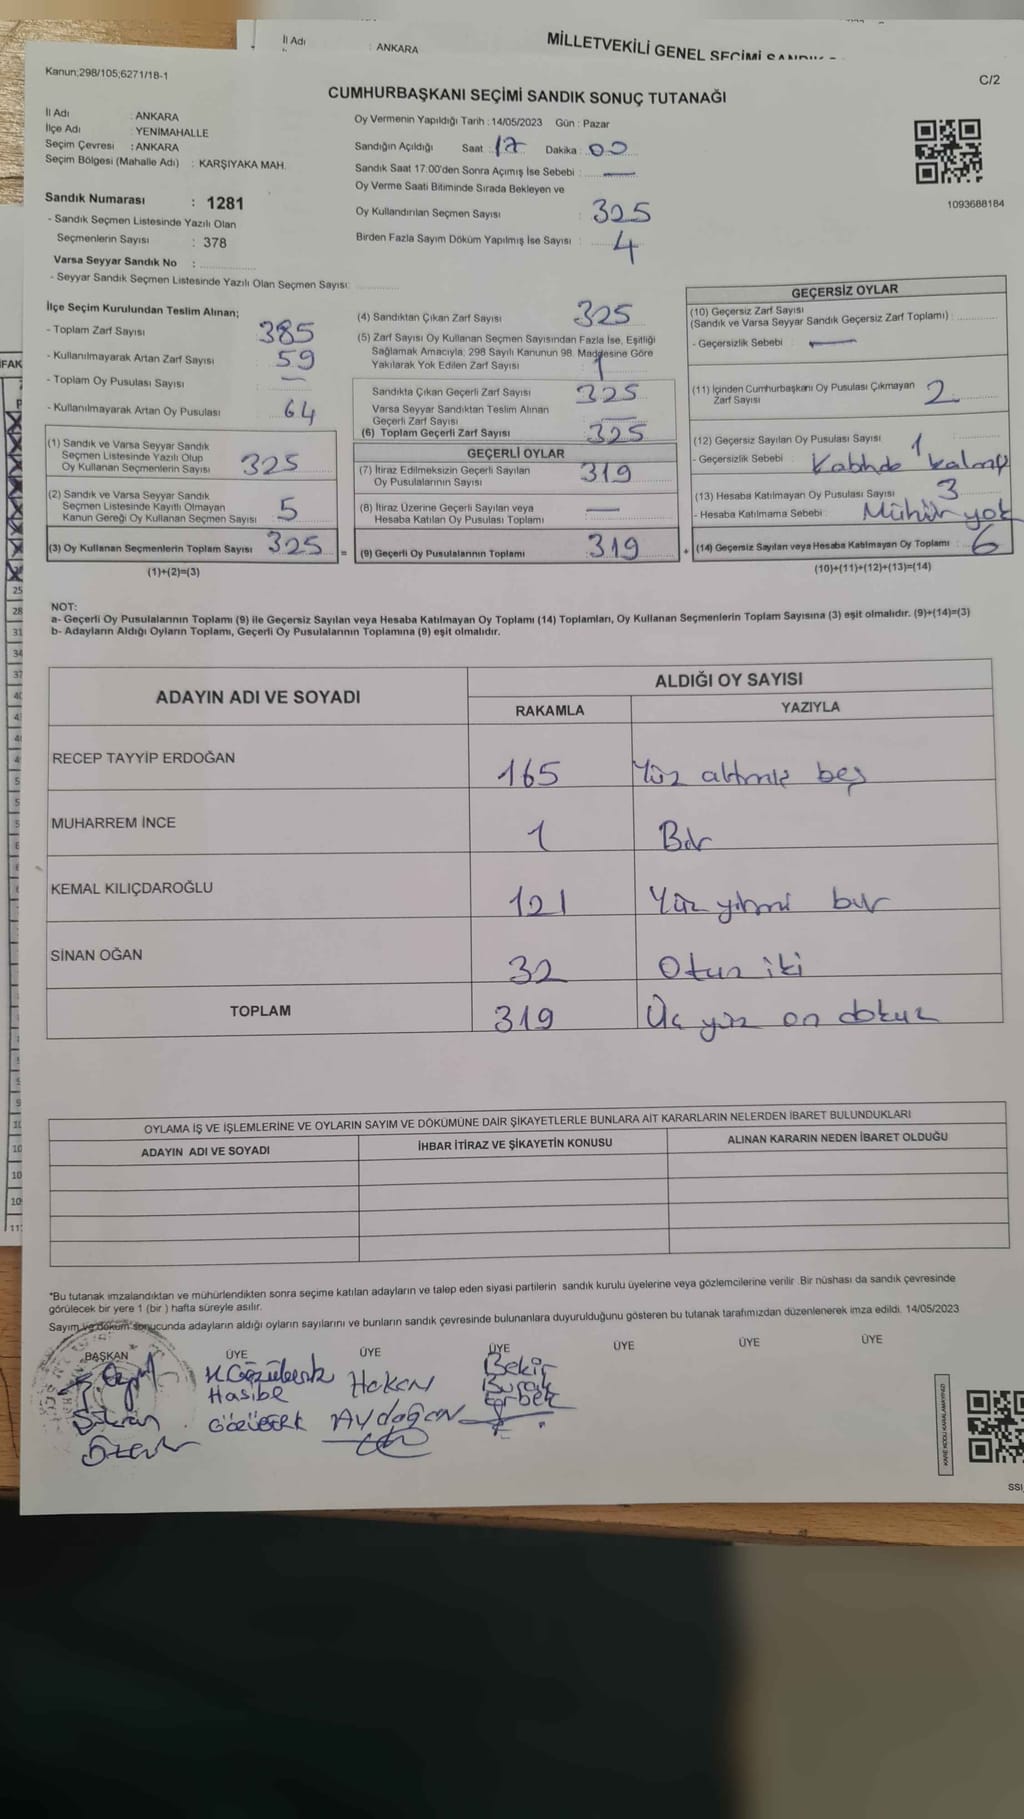 İl Adı : ANKARA
MİLLETVEKİLİ GENEL SEÇİMİ
Kanun;298/105;6271/18-1
C/2
CUMHURBAŞKANI SEÇİMİ SANDIK SONUÇ TUTANAĞI
İl Adı : ANKARA
İlçe Adı : YENİMAHALLE
Seçim Çevresi : ANKARA
Seçim Bölgesi (Mahalle Adı) : KARŞIYAKA MAH.
Sandık Numarası : 1281
- Sandık Seçmen Listesinde Yazılı Olan
Seçmenlerin Sayısı : 378
Varsa Seyyar Sandık No :
- Seyyar Sandık Seçmen Listesinde Yazılı Olan Seçmen Sayısı:
Oy Vermenin Yapıldığı Tarih : 14/05/2023 Gün : Pazar
Sandığın Açıldığı Saat : 17 Dakika : 00
Sandık Saat 17:00'den Sonra Açımış İse Sebebi : —
Oy Verme Saati Bitiminde Sırada Bekleyen ve
Oy Kullandırılan Seçmen Sayısı : 325
Birden Fazla Sayım Döküm Yapılmış İse Sayısı : 4
1093688184
İlçe Seçim Kurulundan Teslim Alınan;
- Toplam Zarf Sayısı : 385
- Kullanılmayarak Artan Zarf Sayısı : 59
- Toplam Oy Pusulası Sayısı : —
- Kullanılmayarak Artan Oy Pusulası : 64
(1) Sandık ve Varsa Seyyar Sandık
Seçmen Listesinde Yazılı Olup
Oy Kullanan Seçmenlerin Sayısı 325
(2) Sandık ve Varsa Seyyar Sandık
Seçmen Listesinde Kayıtlı Olmayan
Kanun Gereği Oy Kullanan Seçmen Sayısı 5
(3) Oy Kullanan Seçmenlerin Toplam Sayısı 325 =
(1)+(2)=(3)
(4) Sandıktan Çıkan Zarf Sayısı : 325
(5) Zarf Sayısı Oy Kullanan Seçmen Sayısından Fazla İse, Eşitliği
Sağlamak Amacıyla; 298 Sayılı Kanunun 98. Maddesine Göre
Yakılarak Yok Edilen Zarf Sayısı : 1
Sandıkta Çıkan Geçerli Zarf Sayısı : 325
Varsa Seyyar Sandıktan Teslim Alınan
Geçerli Zarf Sayısı —
(6) Toplam Geçerli Zarf Sayısı : 325
GEÇERLİ OYLAR
(7) İtiraz Edilmeksizin Geçerli Sayılan
Oy Pusulalarının Sayısı 319
(8) İtiraz Üzerine Geçerli Sayılan veya
Hesaba Katılan Oy Pusulası Toplamı —
(9) Geçerli Oy Pusulalarının Toplamı : 319 +
GEÇERSİZ OYLAR
(10) Geçersiz Zarf Sayısı
(Sandık ve Varsa Seyyar Sandık Geçersiz Zarf Toplamı) :
- Geçersizlik Sebebi : —
(11) İçinden Cumhurbaşkanı Oy Pusulası Çıkmayan
Zarf Sayısı 2
(12) Geçersiz Sayılan Oy Pusulası Sayısı 1
- Geçersizlik Sebebi :
(13) Hesaba Katılmayan Oy Pusulası Sayısı : 3
- Hesaba Katılmama Sebebi : Mühür yok
(14) Geçersiz Sayılan veya Hesaba Katılmayan Oy Toplamı : 6
(10)+(11)+(12)+(13)=(14)
NOT:
a- Geçerli Oy Pusulalarının Toplamı (9) ile Geçersiz Sayılan veya Hesaba Katılmayan Oy Toplamı (14) Toplamları, Oy Kullanan Seçmenlerin Toplam Sayısına (3) eşit olmalıdır. (9)+(14)=(3)
b- Adayların Aldığı Oyların Toplamı, Geçerli Oy Pusulalarının Toplamına (9) eşit olmalıdır.
ADAYIN ADI VE SOYADI
ALDIĞI OY SAYISI
RAKAMLA YAZIYLA
RECEP TAYYİP ERDOĞAN 165 Yüz altmış beş
MUHARREM İNCE 1 Bir
KEMAL KILIÇDAROĞLU 121 Yüz yirmi bir
SİNAN OĞAN 32 Otuz iki
TOPLAM 319 Üç yüz on dokuz
OYLAMA İŞ VE İŞLEMLERİNE VE OYLARIN SAYIM VE DÖKÜMÜNE DAİR ŞİKAYETLERLE BUNLARA AİT KARARLARIN NELERDEN İBARET BULUNDUKLARI
ADAYIN ADI VE SOYADI İHBAR İTİRAZ VE ŞİKAYETİN KONUSU ALINAN KARARIN NEDEN İBARET OLDUĞU
*Bu tutanak imzalandıktan ve mühürlendikten sonra seçime katılan adayların ve talep eden siyasi partilerin sandık kurulu üyelerine veya gözlemcilerine verilir .Bir nüshası da sandık çevresinde
görülecek bir yere 1 (bir ) hafta süreyle asılır.
Sayım ve döküm sonucunda adayların aldığı oyların sayılarını ve bunların sandık çevresinde bulunanlara duyurulduğunu gösteren bu tutanak tarafımızdan düzenlenerek imza edildi. 14/05/2023
BAŞKAN ÜYE ÜYE ÜYE ÜYE ÜYE ÜYE
Hasibe
Hakan
Aydoğan
Bekir
Burak
KARE KODU KARALAMAYINIZ!
SSI